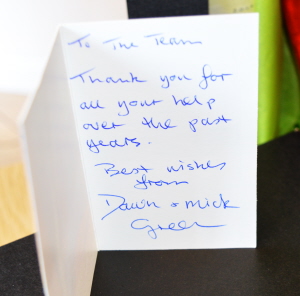 To The Team
Thank you for
all your help
over the past
years.
Best wishes
from
Dawn + Mick
Green